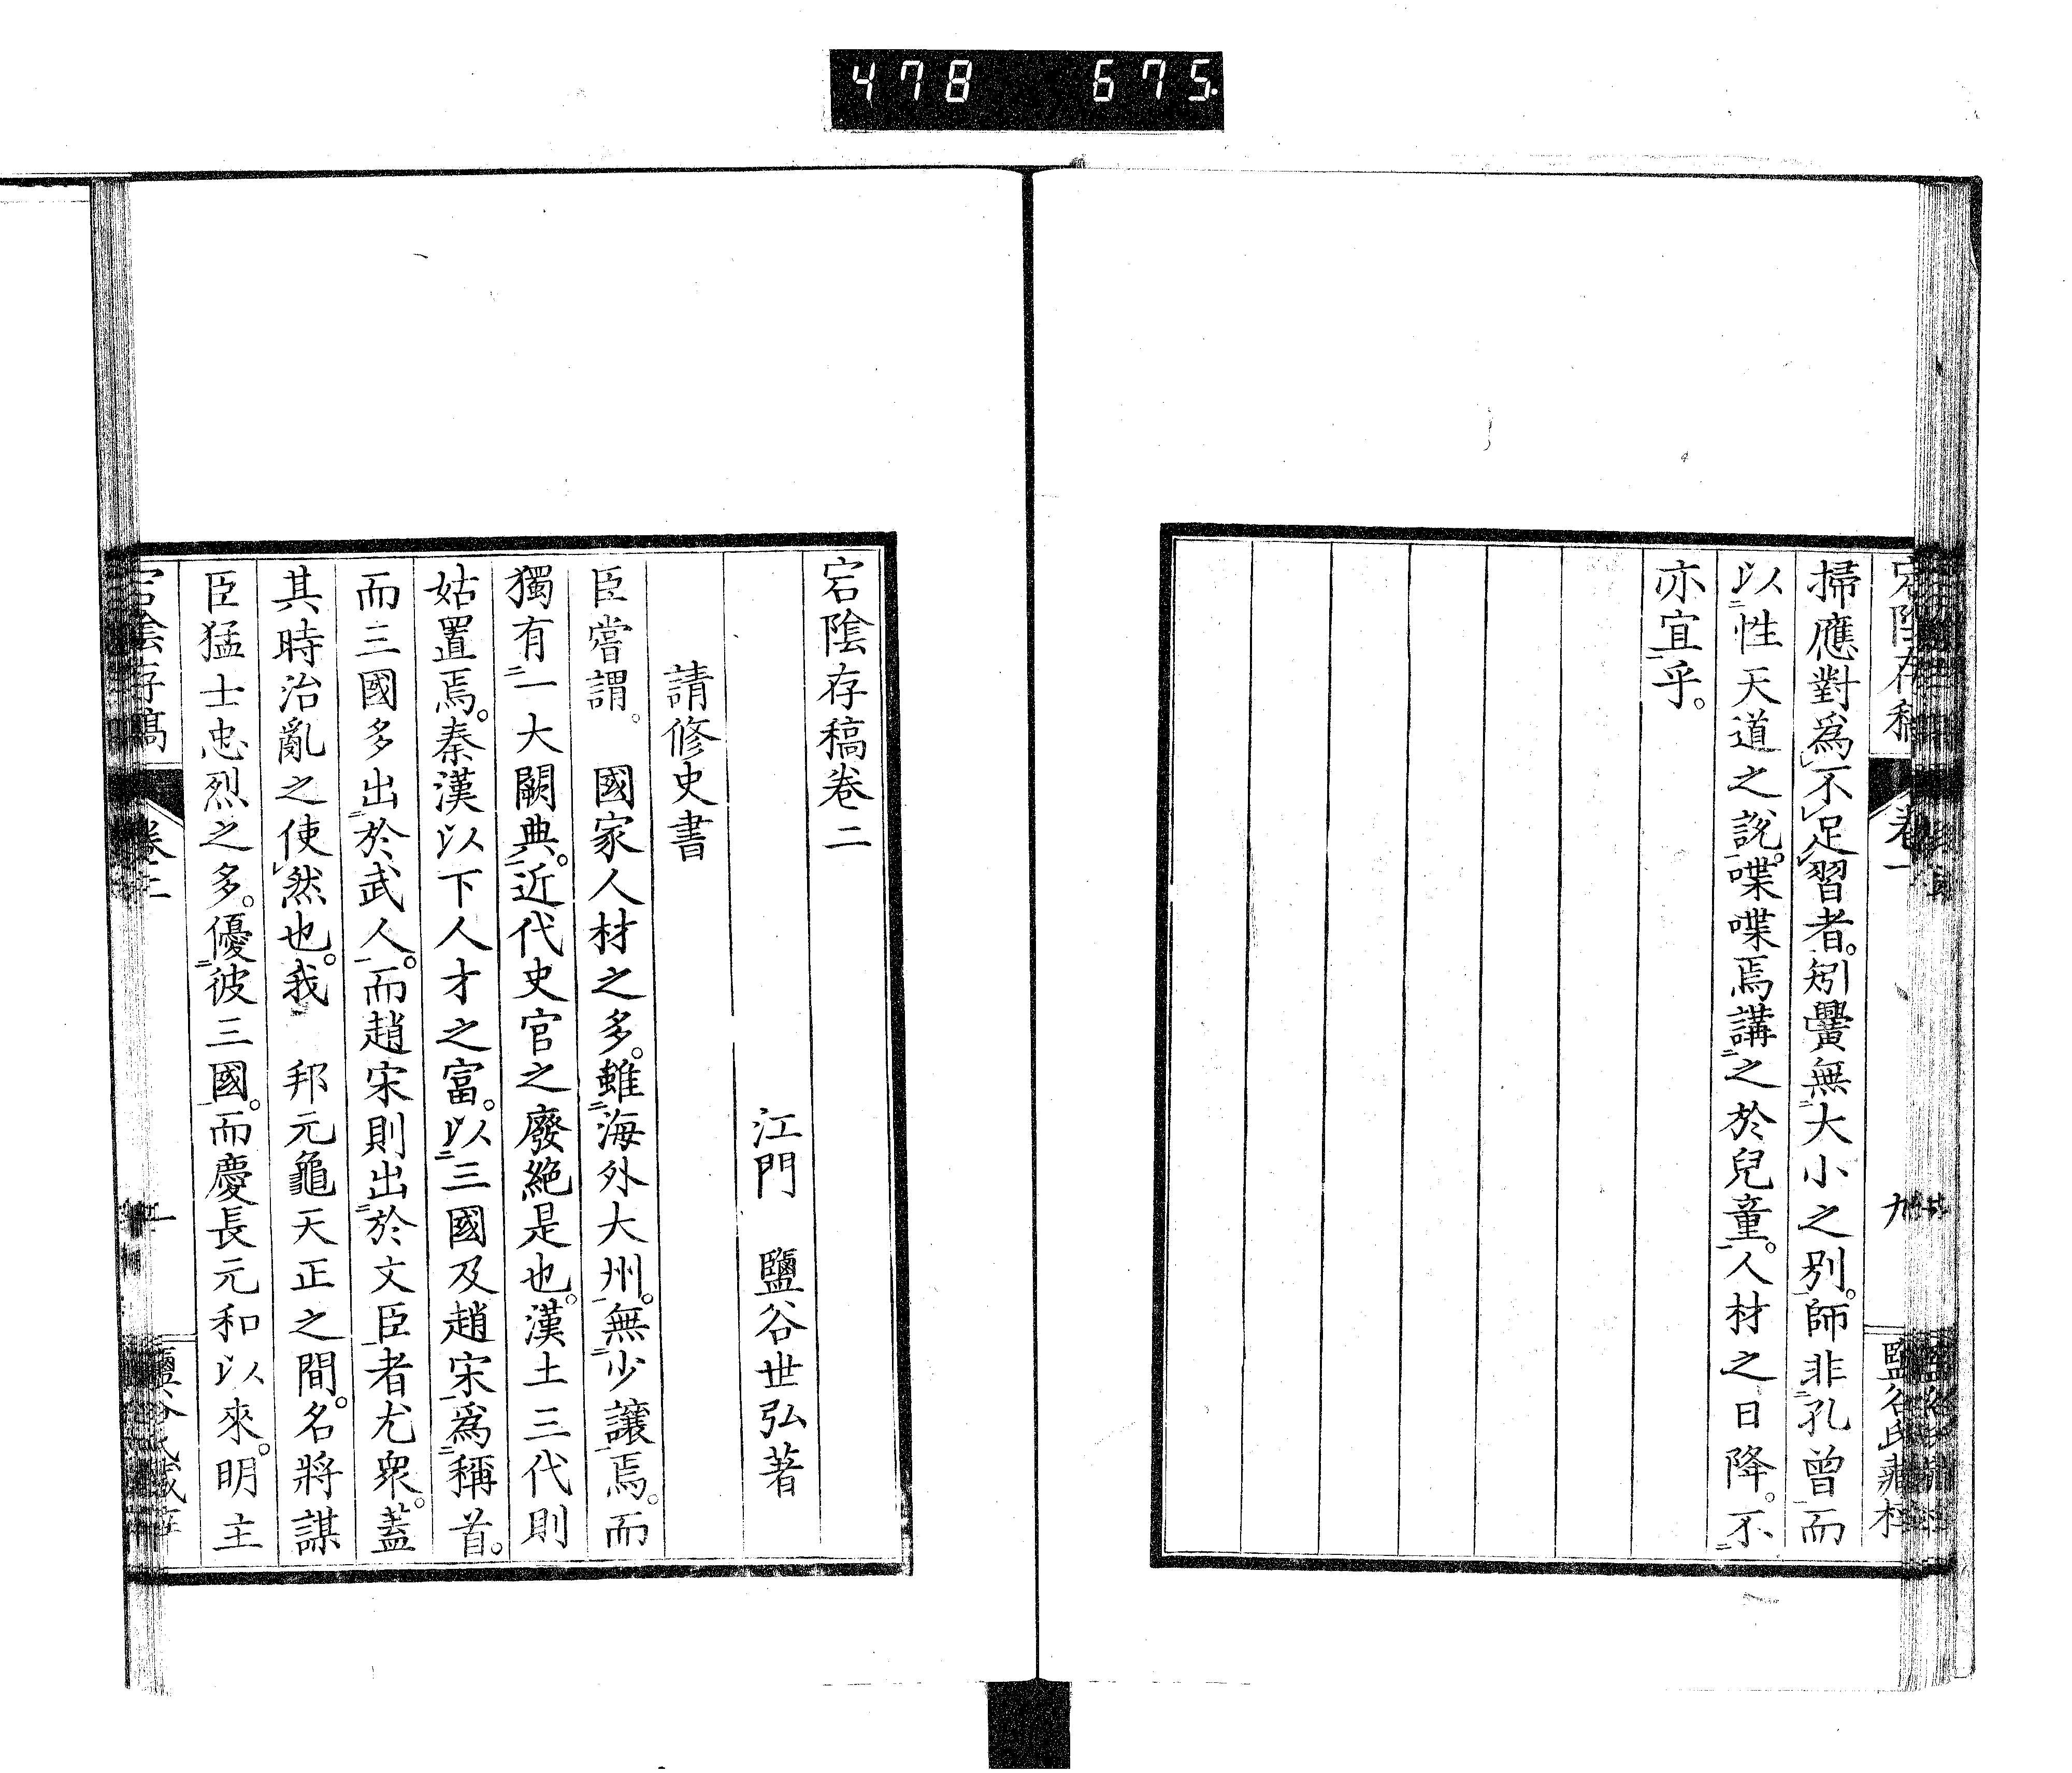 478 675.
宕陰存稿 卷一 九 鹽谷氏藏
掃應對爲不足習者。矧黌無大小之別。師非孔曾而
以性天道之說。喋喋焉講之於兒童。人材之日降。不
亦宜乎。
宕陰存稿卷二
江門 鹽谷世弘著
請修史書
臣嘗謂。 國家人材之多。雖海外大州。無少讓焉。而
獨有一大闕典。近代史官之廢絕是也。漢土三代則
姑置焉。秦漢以下人才之富。以三國及趙宋爲稱首。
而三國多出於武人。而趙宋則出於文臣者尤衆。蓋
其時治亂之使然也。我 邦元龜天正之間。名將謀
臣猛士忠烈之多。優彼三國。而慶長元和以來。明主
宕陰存稿 卷二 一